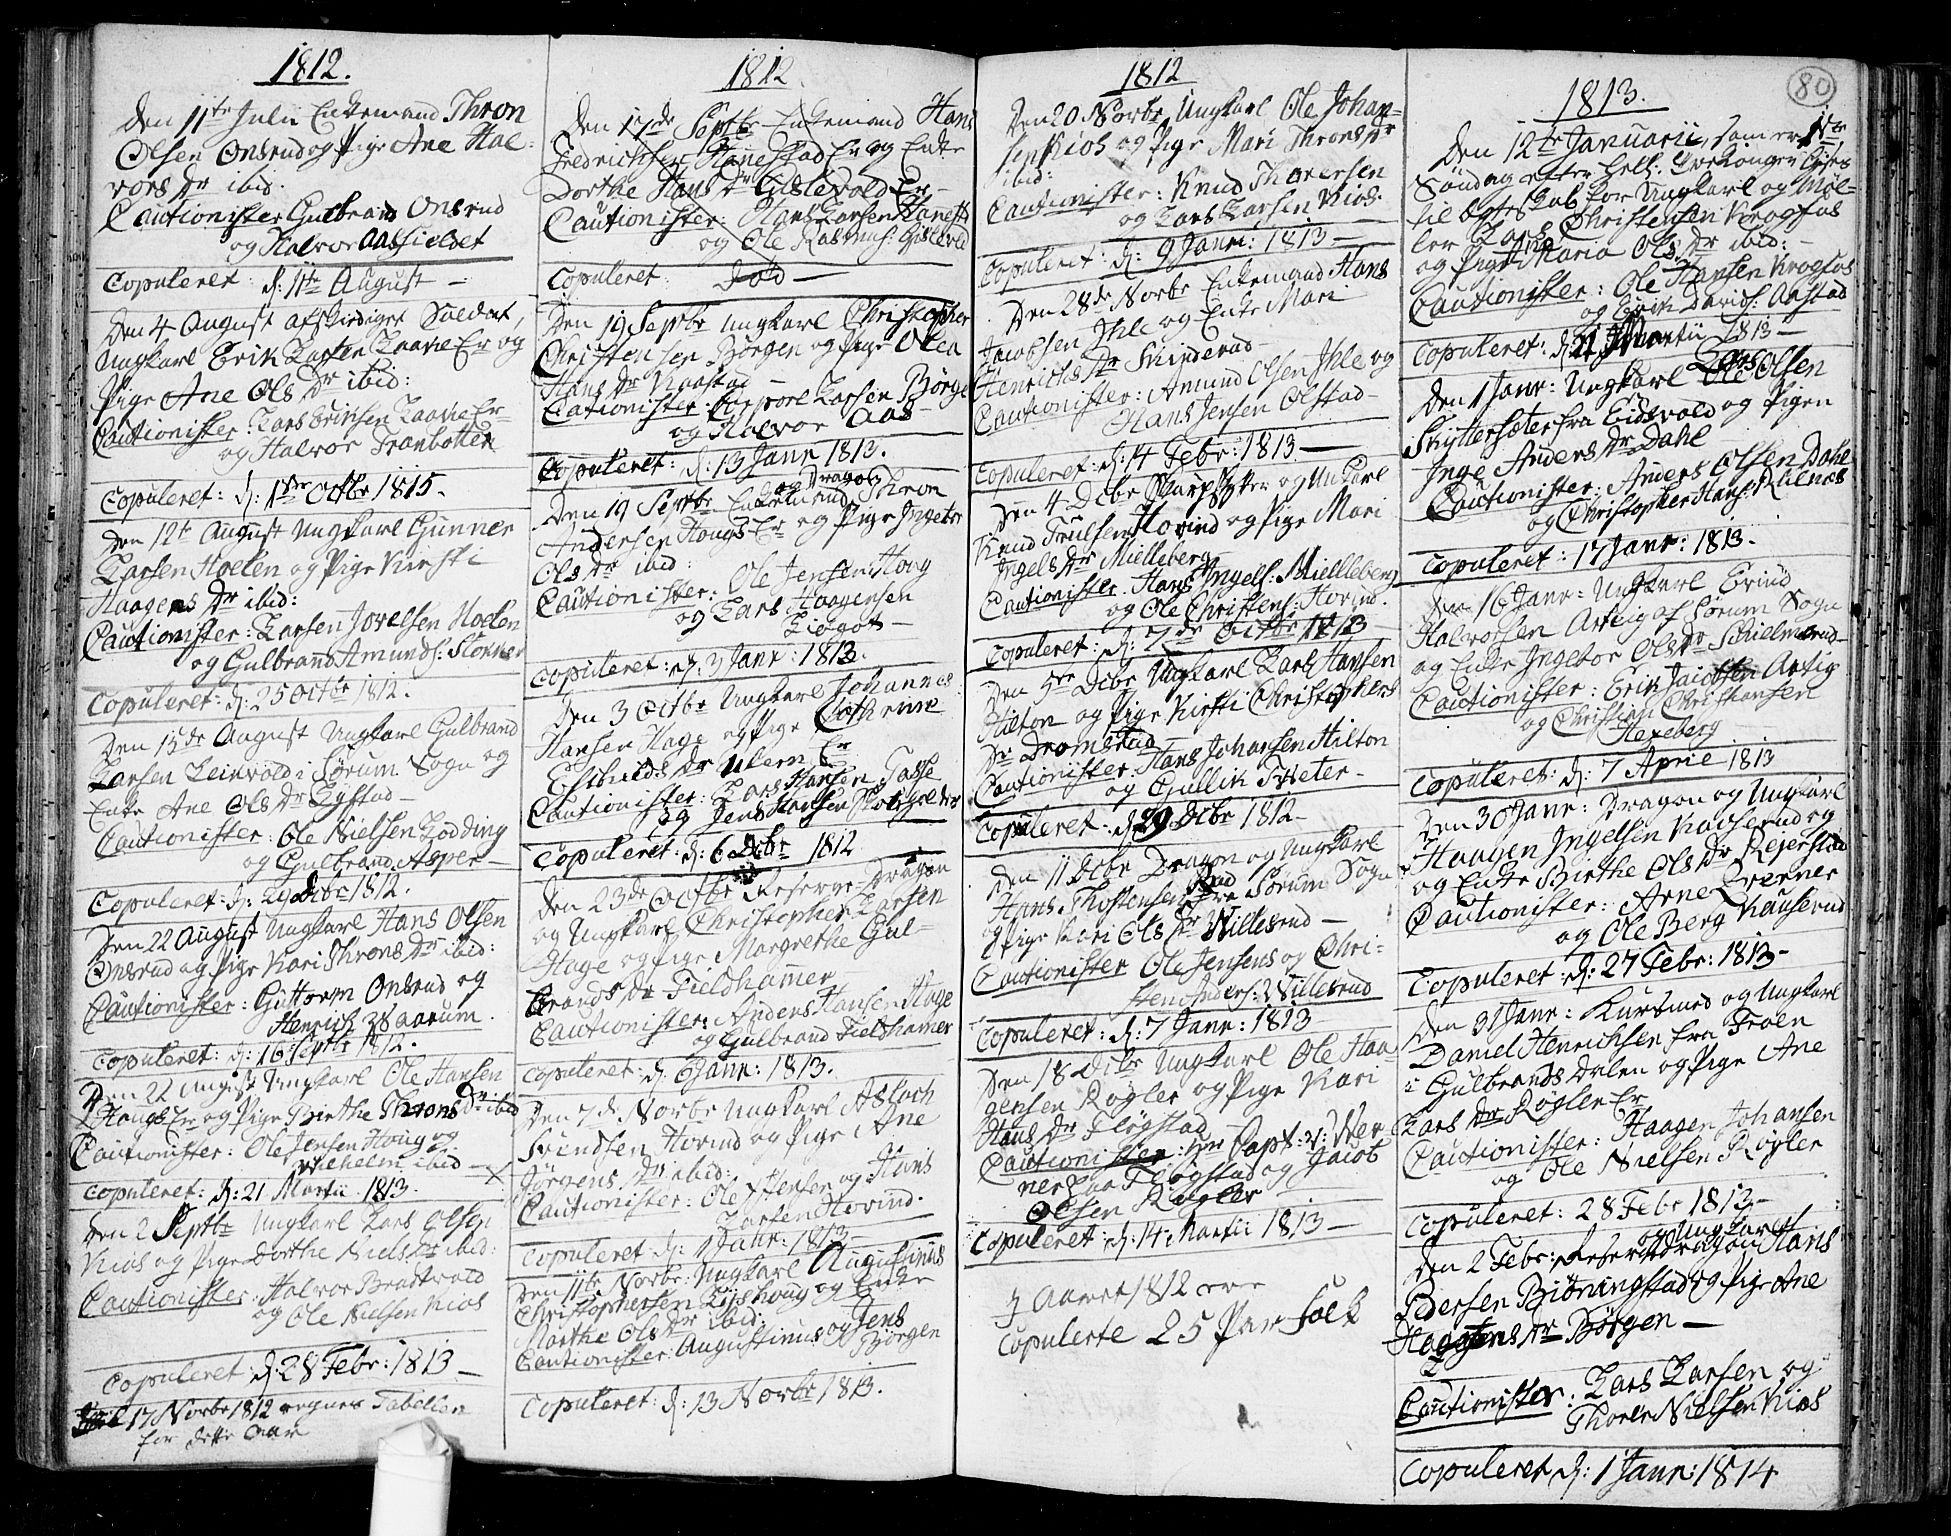 1812.
Den 11te Julii Enkemand Thron
Olsen Onsrud og Pige Ane Hal-
vors Dr ibid.
Cautionister Gulbrand Onsrud
og Halvor Aasfieldet
Copuleret d: 11te August -
Den 4 August afskediget Soldat,
Ungkarl Erik Larsen Laache Er og
Pige Ane Ols Dr ibid:
Cautionister: Lars Eriksen Laache Er-
og Halvor Tranbotten
Copuleret: d: 1ste Octbr 1815.
Den 12te August Ungkarl Gunner
Larsen Hoelen og Pige Kirsti
Haagens Dr ibid:
Cautionister: Larsen Hoelen
og Gulbrand Amunds:
Copuleret: d: 25 Octbr 1812.
Den 15de August Ungkarl Gulbrand
Larsen Leirvold i Sørum Sogn og
Enke Ane Ols Dr Lystad -
Cautionister: Ole Nielsen Lodding
og Gulbrand Asper -
Copuleret: d: 29 Debr 1812.
Den 22 August Ungkarl Hans Olsen
Onsrud og Pige Kari Throns Dr ibid:
Cautionister: Guttorm Onsrud og
Henrich Waarum.
Copuleret: d: 16 Septbr 1812.
Den 22 August Ungkarl Ole Hansen
Hougs Er og Pige Birthe Throns Dr ibid
Cautionister: Ole Jensen Houg og
Wilhelm ibid -
Copuleret: d: 21 Martii 1813.
Den 2 Septbr Ungkarl Lars Olsen
Kios og Pige Dorthe Niels Dr ibid:
Cautionister: Halvor Bradtvold
og Ole Nielsen Kios
Copuleret: d: 28 Febr: 1813 -
17 Norbr 1812 regner Tabellen
for dette Aar
1812
Den 17de Septbr Enkemand Hans
Fredrichsen Hanestad Er og Enke
Dorthe Hans Dr Gislevold Er -
Cautionister: Hans Larsen Hanestd
og Ole Rasmus: Gislevold
Copuleret: død -
Den 19 Septbr Ungkarl Christopher
Christensen Børgen og Pige Olea
Hans Dr Kaastad -
Cationister: Larsen Børge
og Halvor Aas -
Copuleret: d: 13 Janr 1813.
og Dragon
Den 19 Septbr Enkemand Thron
Andersen Hougs Er og Pige Ingebor
Ols Dr ibid:
Cautionister: Ole Jensen Houg
og Lars Haagensen
Copuleret: d: 3 Janr: 1813.
Den 3 Octbr Ungkarl Johannes
Hansen Hage og Pige Cathrine
Eschilds Dr Ulern Er
Cautionister: Lars Hansen Tasse
og Jens
Copuleret: d: 6 Debr 1812
Den 23de Octbr Reserve Dragon
og Ungkarl Christopher Larsen
Hage og Pige Margrethe Gul-
brands Dr Fieldhamer
Cautionister: Anders Hansen Hage
og Gulbrand Fieldhamer
Copuleret: d: 6 Janr: 1813.
Den 7de Norbr Ungkarl Aslach
Svendsen Hovind og Pige Ane
Jørgens Dr ibid:
Cautionister: Ole Jensen og Hans
Larsen Hovind.
Copuleret d: 1 Janr: 1813 -
Den 11te Norbr: Ungkarl Augustinus
Christophersen og Enke
Marthe Ols Dr ibid:
Cautionister: Augustinus og Jens
Børgen
Copuleret: d: 13 Norbr 1813.
1812
Den 20 Norbr Ungkarl Ole Johan-
sen Kios og Pige Mari Throns Dr
ibid:
Cautionister: Knud Thoresen
og Lars Larsen Kios.
Copuleret: d: 9 Janr: 1813 -
Den 28de Norbr Enkemand Hans
Jacobsen Ihle og Enke Mari
Henrichs Dr Skinderud -
Cautionister: Amund Olsen Ihle og
Hans Jensen Olstad -
Copuleret: d: 14 Febr: 1813 -
Den 4 Debr Skarpskytter og Unkarl
Knud Truelsen Hovind og Pige Mari
Ingels Dr Mielleberg
Cautionister: Hans Ingels: Mielleberg
og Ole Christens: Hovind.
Copuleret: d: 7de Octbr 1813 -
Den 5te Debr Ungkarl Lars Hansen
Hilton og Pige Kirsti Christophers
Dr Dromstad -
Cautionister: Hans Johansen Hilton
og Gullik Tveter -
Copuleret: d 29 Debr 1812 -
Den 11 Debr Dragon og Ungkarl
Hans Thostensen Rud fra Sørum Sogn
og Pige Kari Ols Dr Willesrud -
Cautionister Ole Jensens og Chri-
sten Anders: Willesrud
Copuleret: d: 7 Janr: 1813
Den 18 Debr Ungkarl Ole Haa
gensen Røgler og Pige Kari
Hans Dr Fløgstad -
Cautionister: Hr Capt: v: Wer
ner paa Fløgstad og Jacob
Olsen Røgler
Copuleret: d: 14 Martii 1813 -
I Aaret 1812 ere
Copulerte 25 Par Folk
80
1813.
Den 12te Januarii, som er 1ste
Søndag efter Hell: Tre Konger Lyses
til Ægteskab for Ungkarl og Møl-
ler Lars Christensen Krogfos
og Pige Ane Maria Ols Dr ibid: -
Cautionister: Ole Hansen Krogfos
og Erik Davids: Aastad
Copuleret: d: 21 Martii 1813 -
Den 1 Janr: Ungkarl Lars Olsen
Skyttersæter fra Eidsvold og Pigen
Inge Anders Dr Dahl
Cautionister: Anders Olsen Dahl
og Christopher Hans: Rilnæs
Copuleret: 17 Janr: 1813.
Den 16 Janr: Ungkarl Erik
Halvorsen Arteig af Sørum Sogn
og Enke Ingebor Ols Dr Schielmerud
Cautionister: Erik Jacobsen Arteig
og Christian Christiansen
Hexeberg
Copuleret: d: 7 April 1813
Den 30 Janr: Dragon og Ungkarl
Haagen Ingelsen Kauserud og
og Enke Birthe Ols Dr Rejerstad
Cautionister: Arne Qverner
og Ole Berg Kauserud
Copuleret: d: 27 Febr: 1813 -
Den 31 Janr: Kursmed og Ungkarl
Daniel Henrichsen fra Froen
i Gulbrandsdalen og Pige Ane
Lars Dr Røgler Er
Cautionister: Haagen Johansen
og Ole Nielsen Røgler
Copuleret: 28 Febr 1813 -
og Ungkarl
Den 2 Febr: Reservedragon Hans
Pedersen Biørningstad og Pige Ane
Haagens Dr Børgen -
Cautionister: Lars Larsen og
Thorer Nielsen Kios
Copuleret d: 1 Janr: 1814